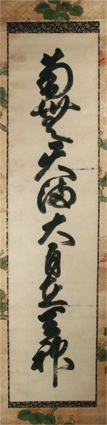 南無天満大自在天神